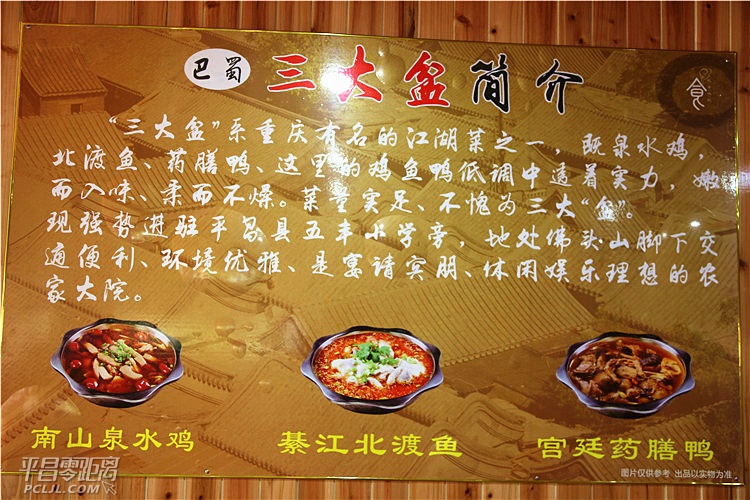 巴蜀 三大盆简介
食
“三大盆”系重庆有名的江湖菜之一，既泉水鸡，
北渡鱼、药膳鸭、这里的鸡鱼鸭低调中透着实力，嫩
而入味、柔而不燥。菜量实足、不愧为三大“盆”。
现强势进驻平昌县五丰小学旁，地处佛头山脚下交
通便利、环境优雅、是宴请宾朋、休闲娱乐理想的农
家大院。
南山泉水鸡
綦江北渡鱼
宫廷药膳鸭
图片仅供参考 出品以实物为准
平昌零距离
PCLJL.COM